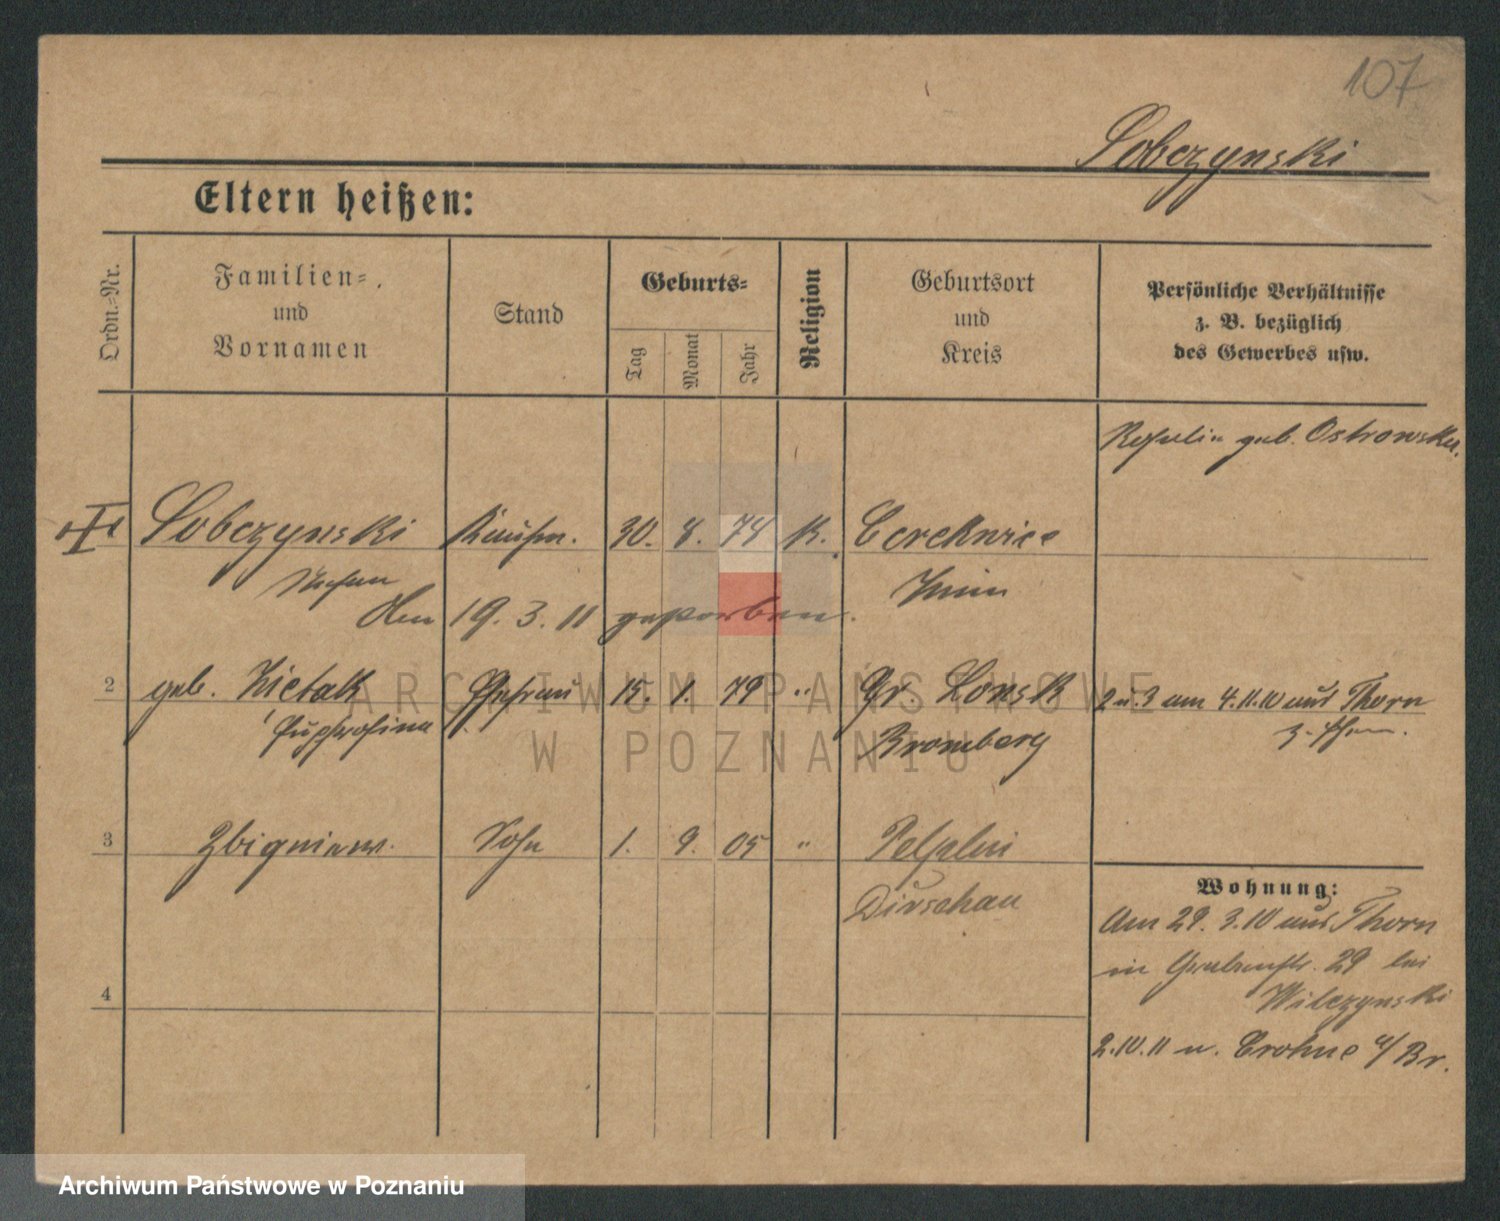 107
Sobczynski
Eltern heißen:
Ordn.=Nr.
Familien=
und
Vornamen
Stand
Geburts=
Tag
Monat
Jahr
Religion
Geburtsort
und
Kreis
Persönliche Verhältnisse
z. B. bezüglich
des Gewerbes usw.
geb. Ostrowska.
Sobczynski Kaufm. 30. 8. 74 K. Cerekwice
Stefan Znin
Am 19. 3. 11 gestorben.
2 geb. Zietak Ehefrau 15. 1. 79 " Gr. Lonsk 2 u. 3 am 4.11.10 aus Thorn
Euphrosina Bromberg z.
3 Zbigniew. Sohn 1. 9. 05 " Pelplin
Dirschau
Wohnung:
Am 29. 3. 10 aus Thorn
in Grabenstr. 29 bei
4 Wilczynski
2.10.11 n. Crohne a/Br.
ARCHIWUM PAŃSTWOWE
W POZNANIU
Archiwum Państwowe w Poznaniu